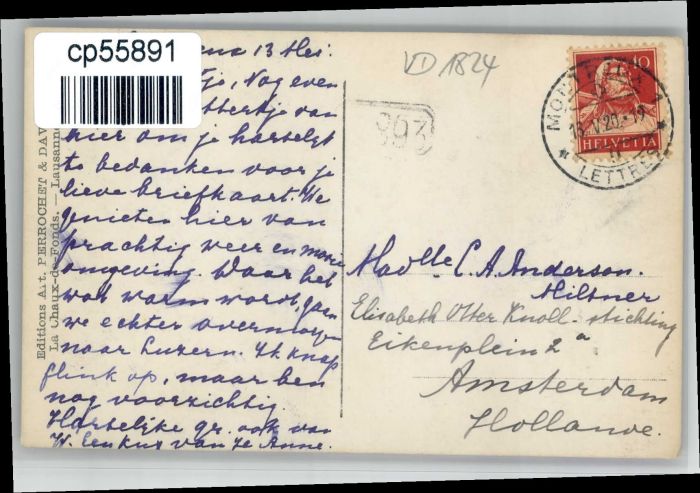 cp55891
13 Mei.
Nog even
van
hier om je hartelijk
te bedanken voor je
lieve briefkaart. We
genieten hier van
prachtig weer en mooie
omgeving. Daar het
wat warm wordt, gaan
we echter overmorgen
naar Luzern. Ik knap
flink op, maar ben
nog voorzichtig.
Hartelijke gr. ook van
W. Een kus van Je Anne.
Editions Art. PERROCHET & DAV
La Chaux-de-Fonds. — Lausanne
VD 1824
993
10
HELVETIA
MONTREUX
LETTRES
Madlle C. A. Anderson.
Miltner
Elisabeth Otter Knoll-stichting
Eikenplein 2a
Amsterdam
Hollande.